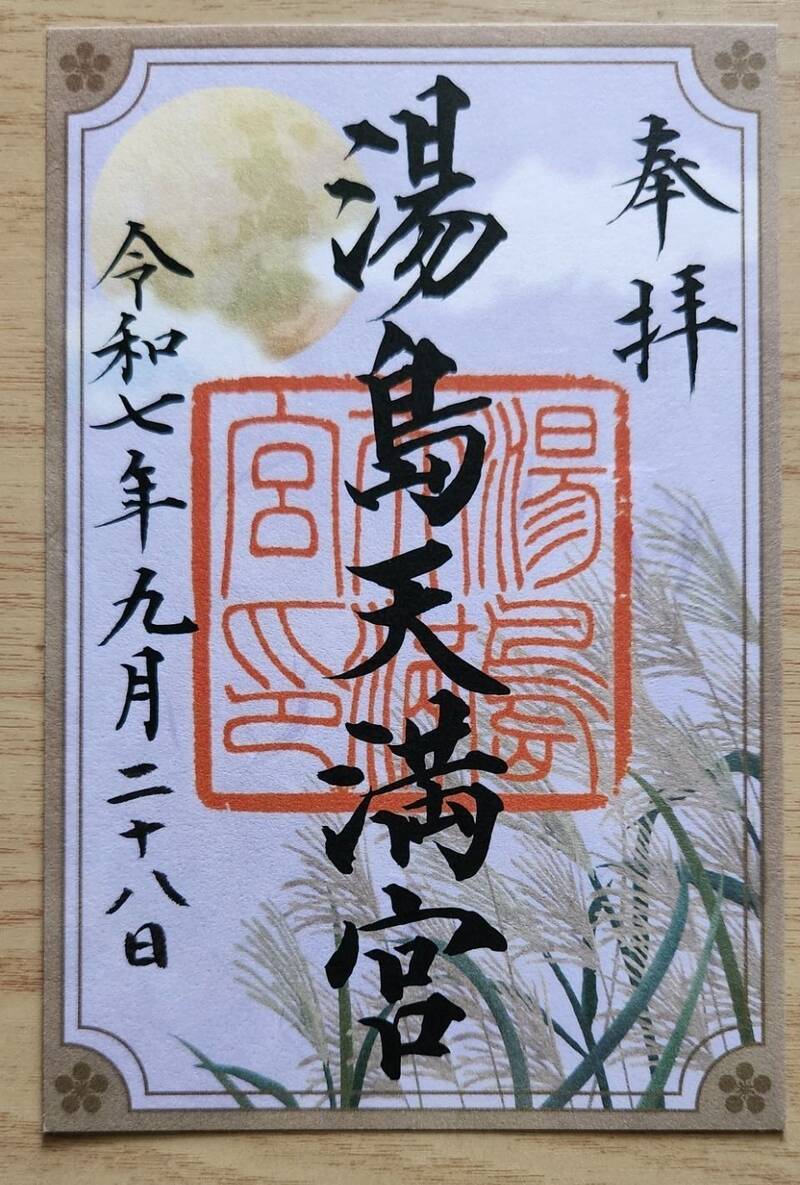 奉拝
湯島天満宮
湯島
天満
宮印
令和七年九月二十八日